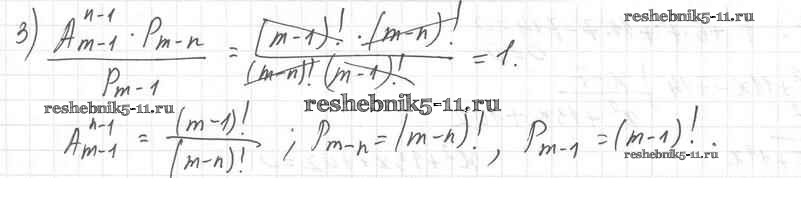 reshebnik5-11.ru
3) (A_{m-1}^{n-1} · P_{m-n}) / P_{m-1} = ((m-1)! · (m-n)!) / ((m-n)! (m-1)!) = 1.
reshebnik5-11.ru reshebnik5-11.ru
A_{m-1}^{n-1} = (m-1)! / (m-n)! ; P_{m-n} = (m-n)! , P_{m-1} = (m-1)! .
reshebnik5-11.ru